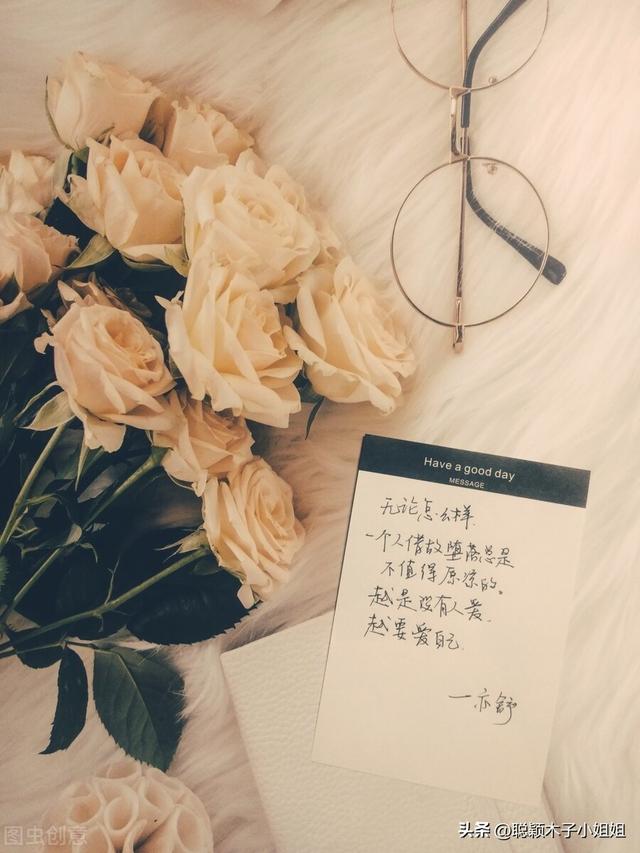 Have a good day
MESSAGE
无论怎么样
一个人借故堕落总是
不值得原凉的。
越是没有人爱、
越要爱自己
—亦舒
图虫创意
头条 @聪颖木子小姐姐